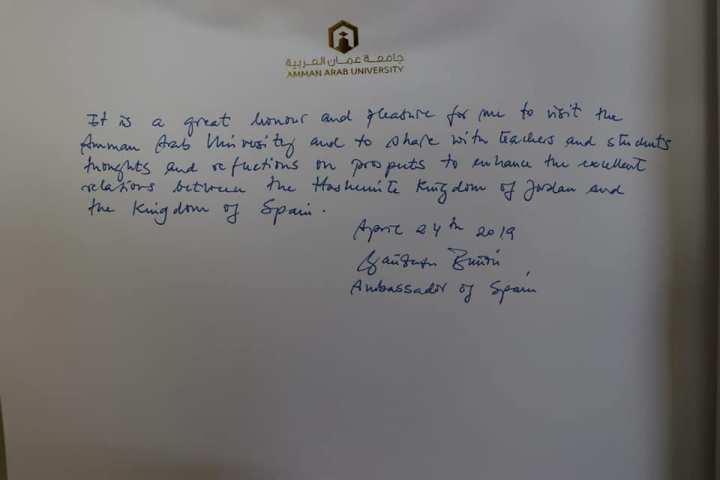 جامعة عمان العربية
AMMAN ARAB UNIVERSITY
It is a great honour and pleasure for me to visit the
Amman Arab University and to share with teachers and students
thoughts and reflections on prospects to enhance the excellent
relations between the Hashemite Kingdom of Jordan and
the Kingdom of Spain.
April 24th 2019
Ambassador of Spain